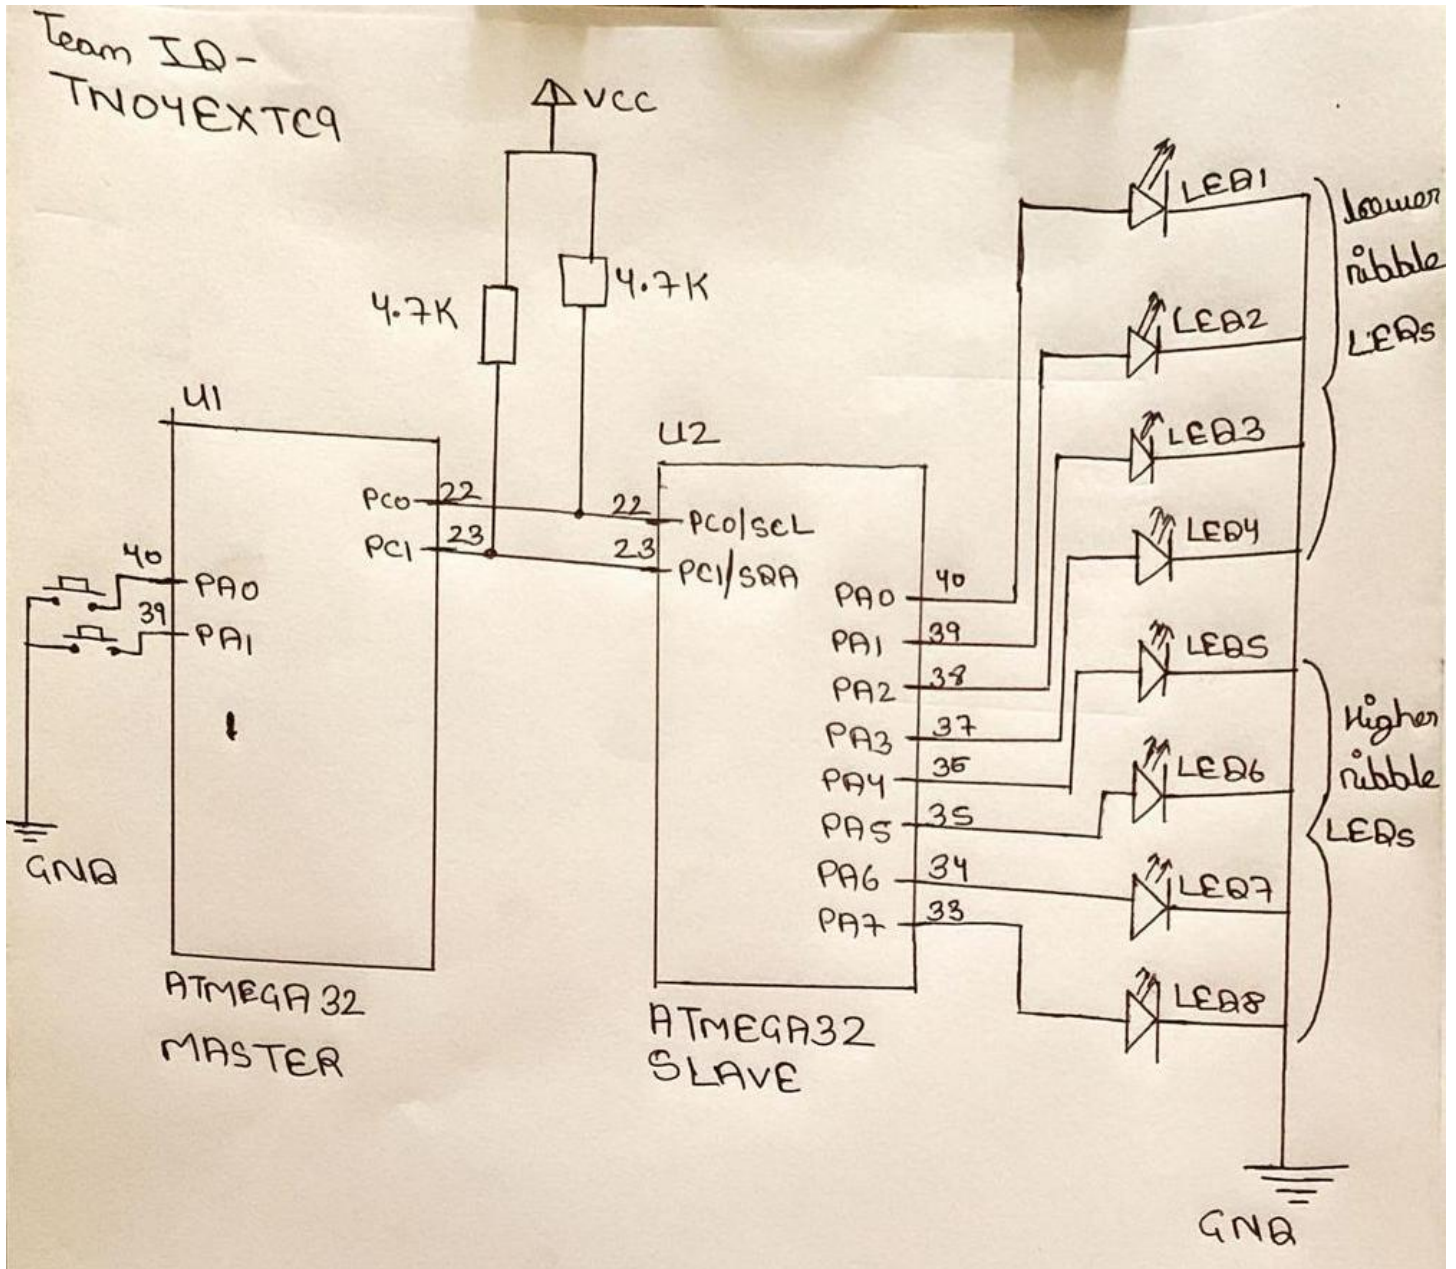 Team ID-
TN04EXTC9
VCC
4.7K
4.7K
U1
PC0
22
PC1
23
40
PA0
39
PA1
1
GND
ATMEGA32
MASTER
U2
22
PC0/SCL
23
PC1/SDA
PA0
40
PA1
39
PA2
38
PA3
37
PA4
36
PA5
35
PA6
34
PA7
33
ATMEGA32
SLAVE
LED1
LED2
LED3
LED4
LED5
LED6
LED7
LED8
Lower
nibble
LEDs
Higher
nibble
LEDs
GND